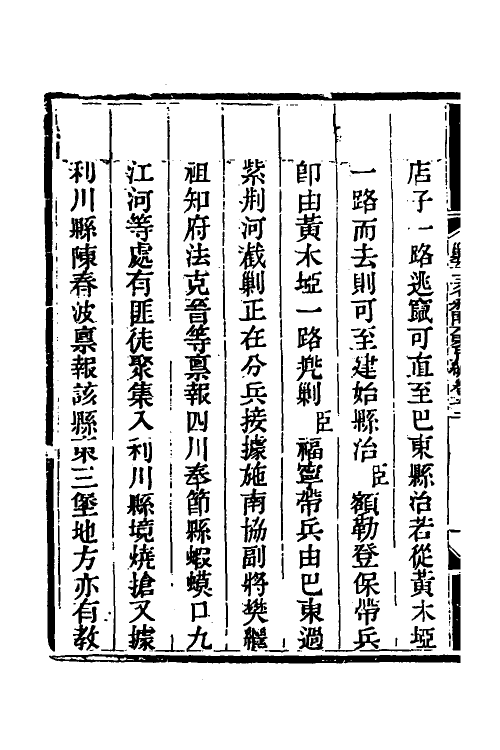 店子一路逃竄可直至巴東縣治若從黃木埡
一路而去則可至建始縣治臣額勒登保帶兵
卽由黃木埡一路兠剿臣福寧帶兵由巴東過
紫荆河截剿正在分兵接據施南協副將樊繼
祖知府法克晉等稟報四川奉節縣蝦蟆口九
江河等處有匪徒聚集入利川縣境燒搶又據
利川縣陳春波稟報該縣東三堡地方亦有教